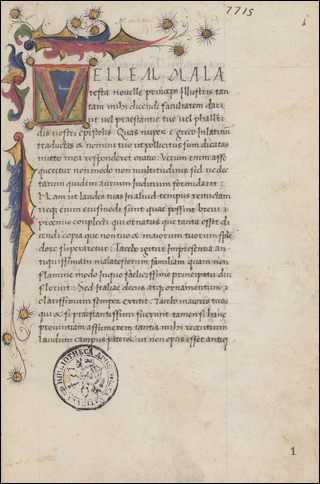 7715
1
VELLEM MALA
testa novelle princeps Illustris tan
tam mihi dicendi facultatem dari
ut vel praestantie tue vel phalari
dis nostri epistolis Quas nuper e greco In latinū
traductas & nomini tuo ut pollicitus sum dicatas
mitto mea responderet oratio Verum enim
queretur non modo non multitudinis sed ne doc
tarum quidem aurium Iuditium formidarem
Nam in laudes tuas In aliud tempus reiiciam
neque enim eiusmodi sunt quae possint brevi
proemio complecti qui ornatus quae tanta esset di
cendi copia que non tuo & maiorum tuorum splen
dore superaretur Tacebo igitur Impresentia an
tiquissimam malatestorum familiam quam non
flamine modo Inquo faelicissime principatu diu
floruit Sed Italiae decus atque ornamentum &
clarissimum semper extitit Tacebo maiores tuos
qui & si praestantissimi fuerunt tamen si hanc
provintiam assumerem tantis mihi recentium
laudum campus pateret ut non opus esset antiq
BIBLIOTHECA
1